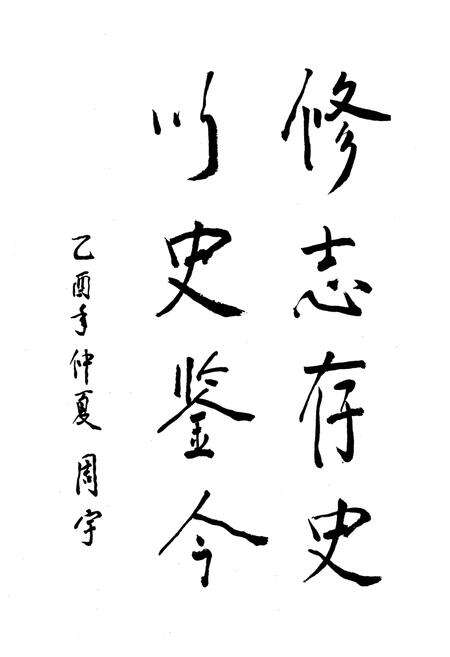 修志存史
以史鉴今
乙酉年仲夏 周宇